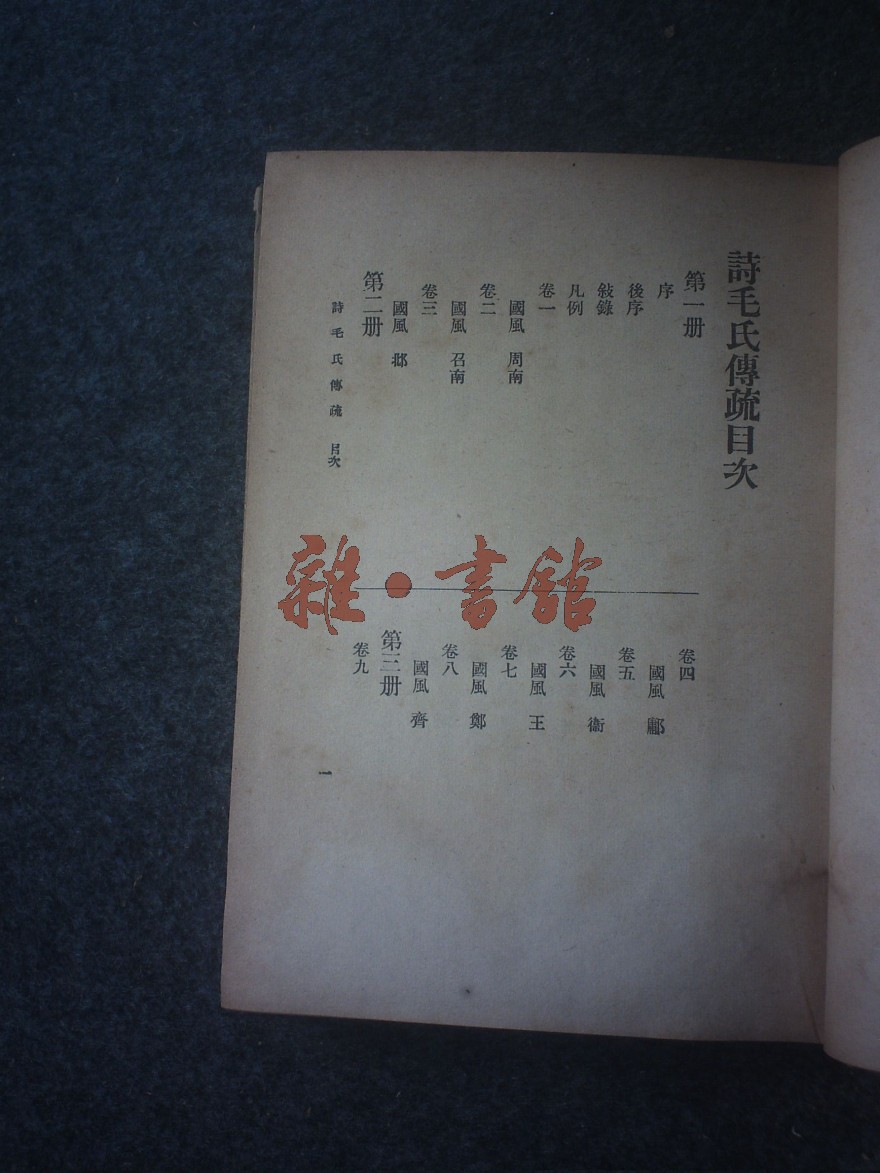 詩毛氏傳疏目次
第一册
序
後序
敍錄
凡例
卷一
國風 周南
卷二
國風 召南
卷三
第二册
國風 邶
卷四
國風 鄘
卷五
國風 衞
卷六
國風 王
卷七
國風 鄭
卷八
國風 齊
第三册
卷九
詩毛氏傳疏 目次
一
雜·書館